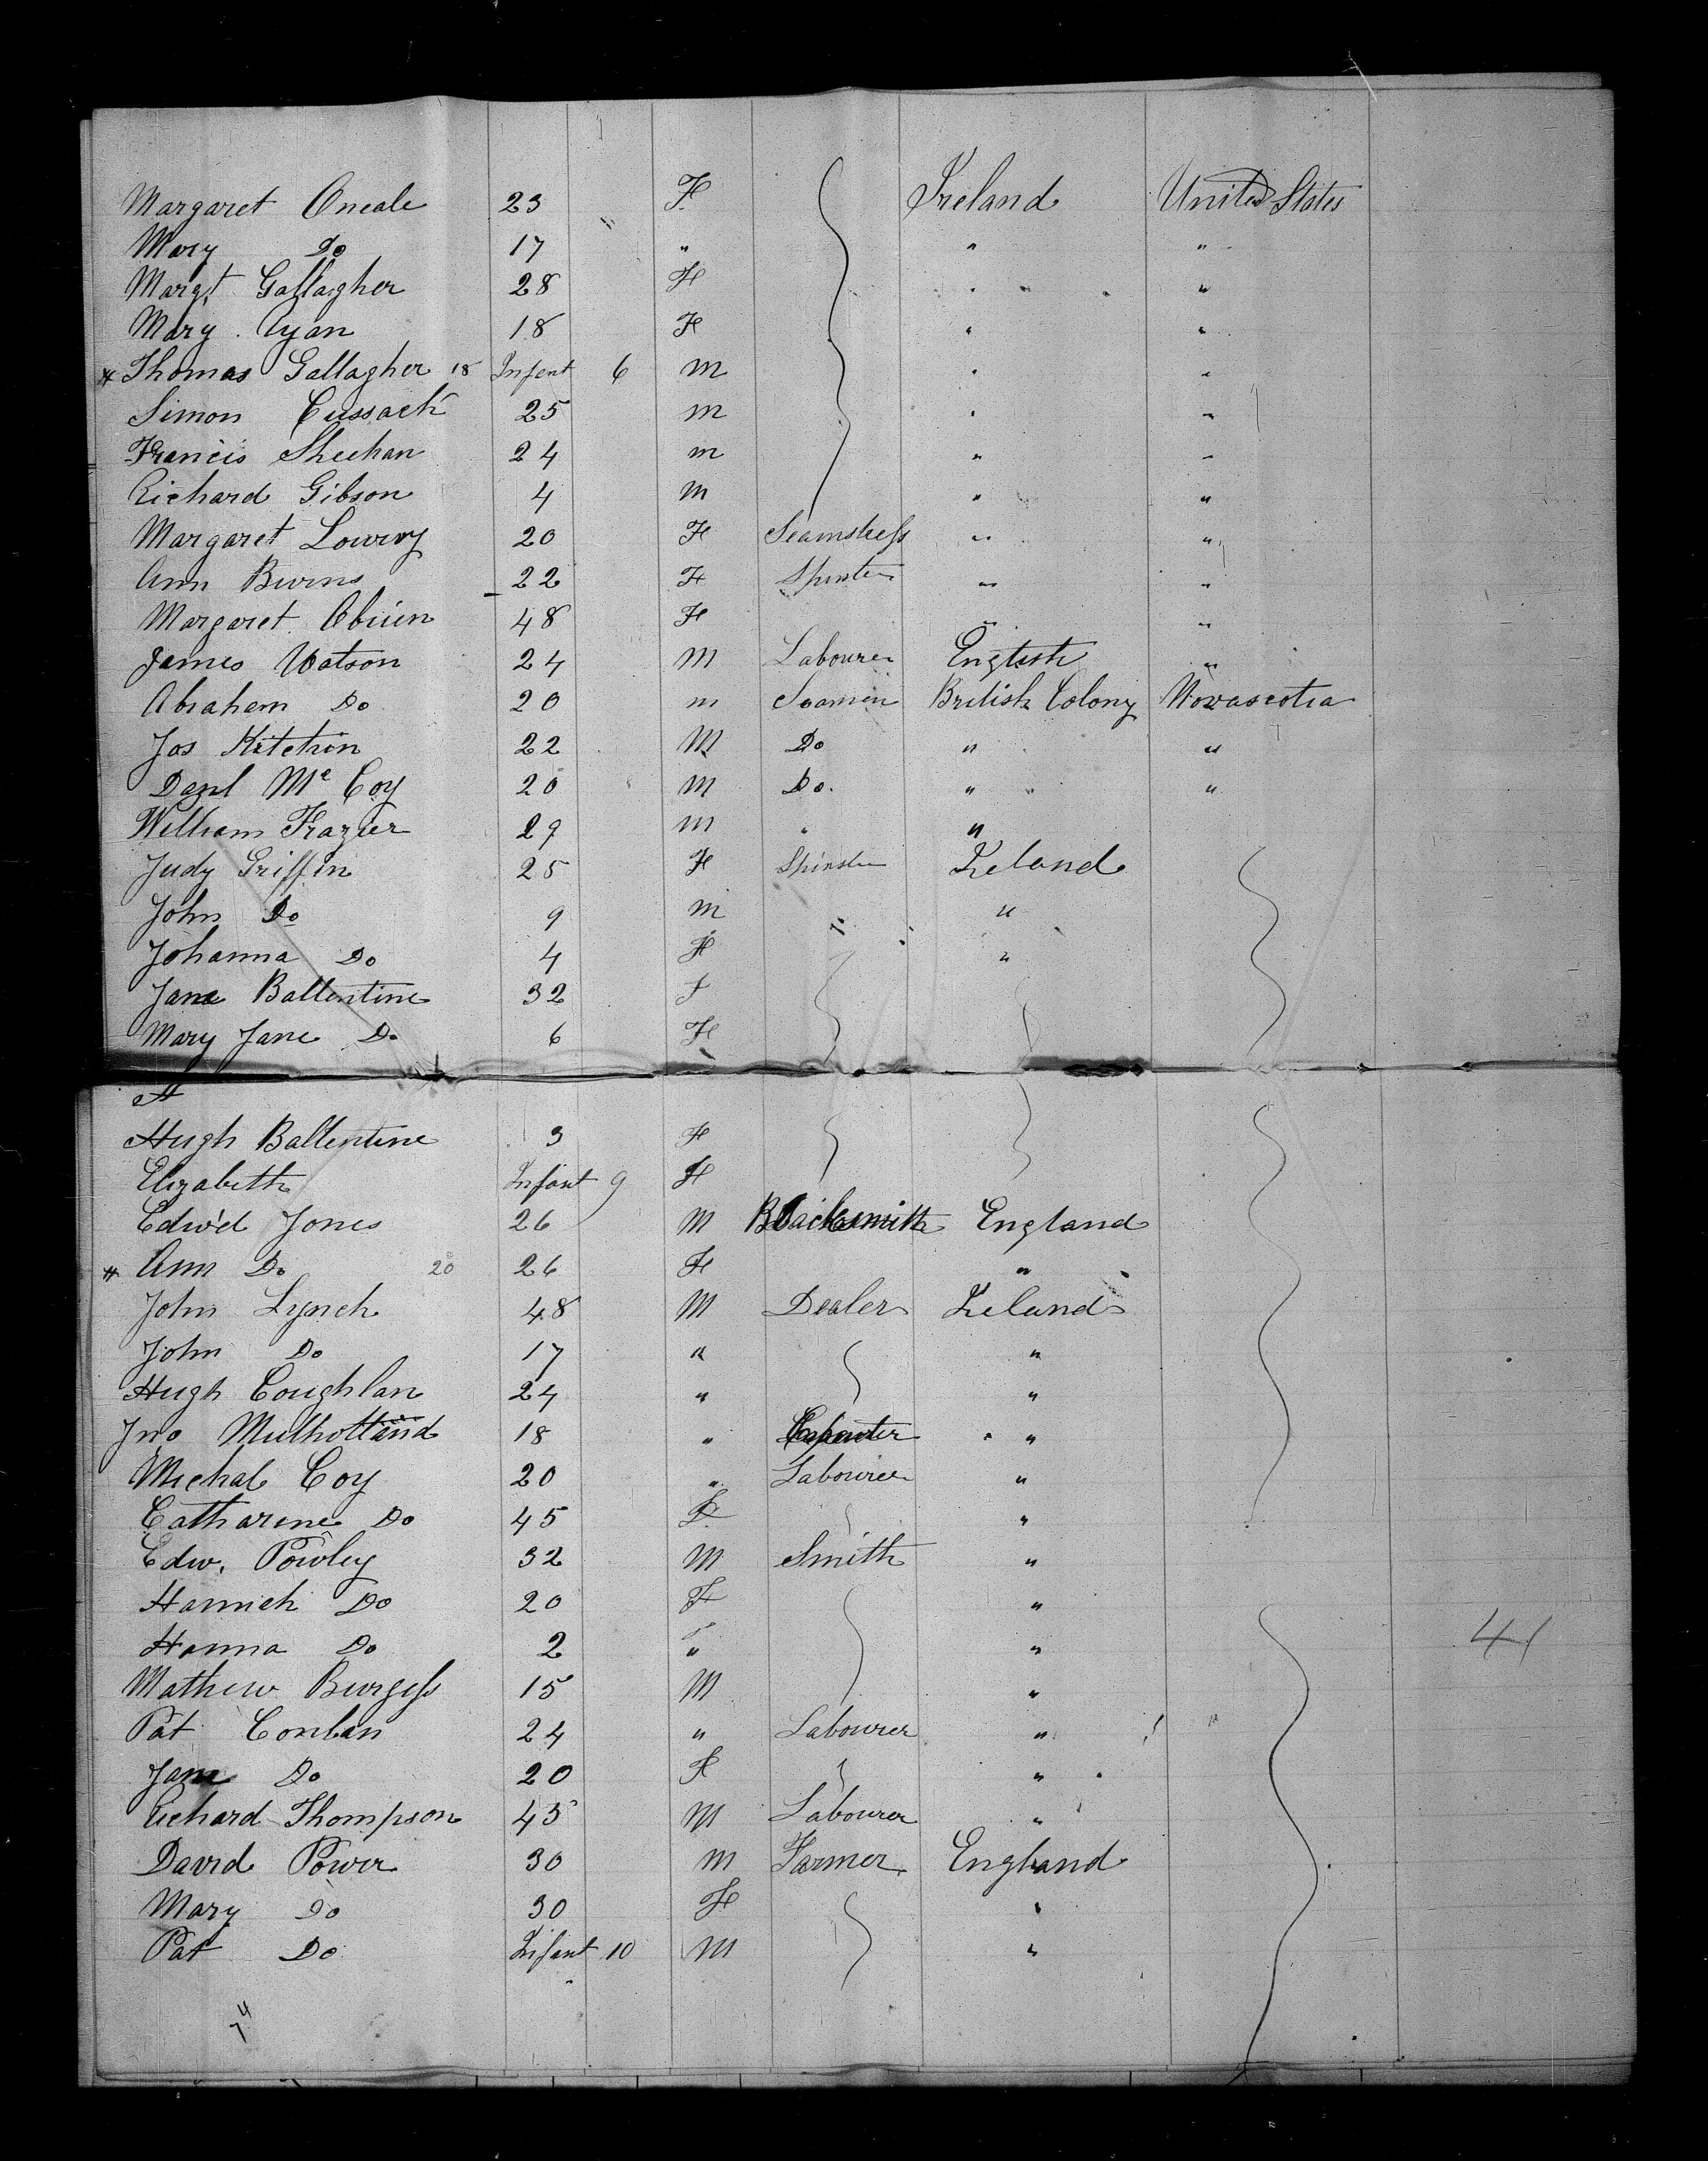 Margaret Oneale 23 F Ireland United States
Mary Do 17 " " "
Margt Gallagher 28 F " "
Mary Ryan 18 F " "
Thomas Gallagher 18 Infant 6 M " "
Simon Cussack 25 M " "
Francis Sheehan 24 M " "
Richard Gibson 4 M " "
Margaret Lowry 20 F Seamstress " "
Ann Burns 22 F Spinster " "
Margaret Obrien 48 F " "
James Watson 24 M Labourer English "
Abraham Do 20 M Seamen British Colony Novascotia
Jos Kitchin 22 M Do " "
Danl Mc Coy 20 M Do. " "
William Frazier 29 M " "
Judy Griffin 25 F Spinster Ireland
John Do 9 M " "
Johanna Do 4 F "
Jane Ballentine 32 F
Mary Jane Do 6 F
H
Hugh Ballentine 3 F
Elizabeth Infant 9 F
Edwd Jones 26 M Blacksmith England
Ann Do 20 26 F "
John Lynch 48 M Dealer Ireland
John Do 17 " "
Hugh Coughlan 24 " "
Jno Mulholland 18 " Carpenter "
Michal Coy 20 " Labourer "
Catharine Do 45 F "
Edw. Powley 32 M Smith "
Hannieh Do 20 F "
Hanna Do 2 " "
Mathew Burgess 15 M "
Pat Conlan 24 " Labourer "
Jane Do 20 F "
Richard Thompson 45 M Labourer "
David Power 30 M Farmer England
Mary Do 30 F "
Pat Do Infant 10 M "
41
74